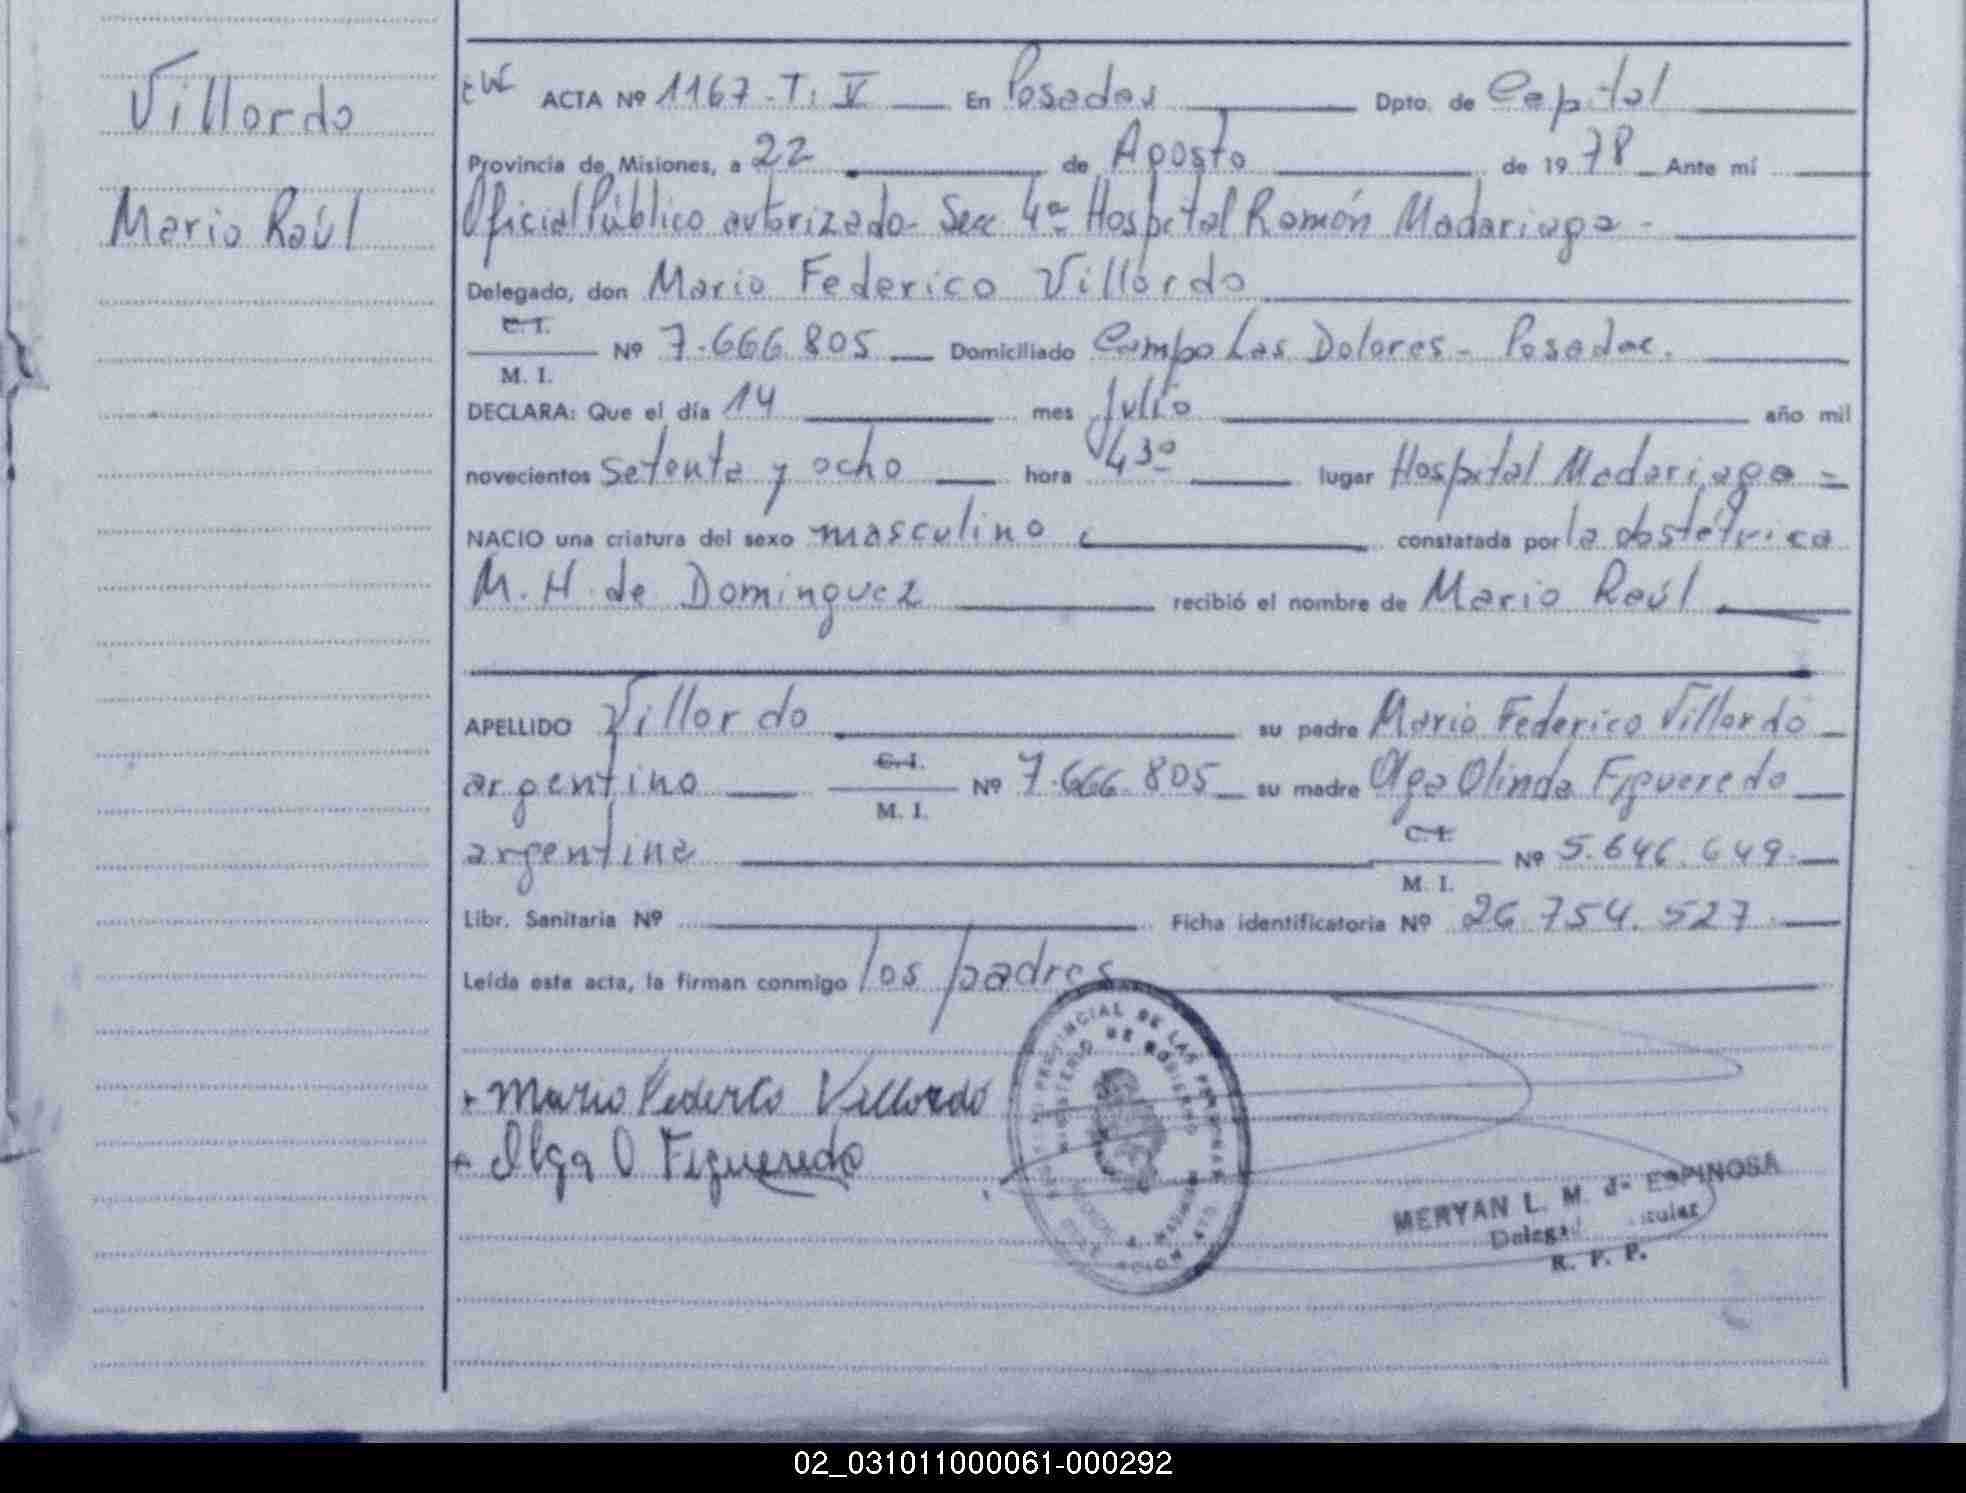 Villordo
Mario Raúl
ACTA Nº 1167-T. V En Posadas Dpto. de Capital
Provincia de Misiones, a 22 de Agosto de 1978 Ante mí
Oficial Público autorizado Secc 4ª Hospital Ramón Madariaga -
Delegado, don Mario Federico Villordo
C. I.
Nº 7.666.805 Domiciliado Campo Las Dolores - Posadas.
M. I.
DECLARA: Que el día 14 mes Julio año mil
novecientos setenta y ocho hora 4 30 lugar Hospital Madariaga =
NACIO una criatura del sexo masculino constatada por la obstétrica
M. H. de Dominguez recibió el nombre de Mario Raúl
APELLIDO Villordo su padre Mario Federico Villordo
argentino C. I. Nº 7.666.805 su madre Olga Olinda Figueredo
M. I.
argentina C. I. Nº 5.646.649.
M. I.
Libr. Sanitaria Nº Ficha identificatoria Nº 26.754.527.
Leída esta acta, la firman conmigo los padres
+ Mario Federico Villordo
+ Olga O Figueredo
PROVINCIAL DE LAS PERSONAS
MINISTERIO DE GOBIERNO
MERYAN L. M. de ESPINOSA
R. P. P.
02_031011000061-000292